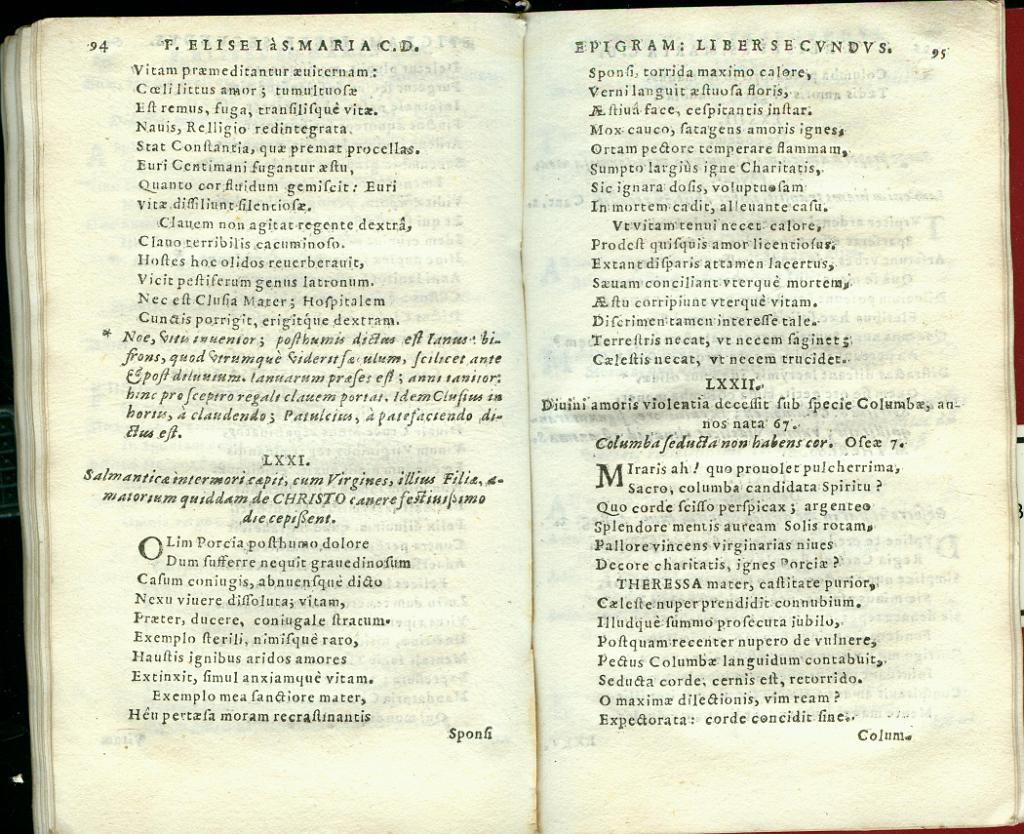 94 F. ELISEI à S. MARIA C. D.
Vitam præmeditantur æuiternam:
Cœli littus amor; tumultuosæ
Est remus, fuga, transilisquè vitæ.
Nauis, Relligio redintegrata.
Stat Constantia, quæ premat procellas.
Euri Centimani fugantur æstu,
Quanto cor fluidum gemiscit: Euri
Vitæ dissiliunt silentiosæ.
Clauem non agitat regente dextrâ,
Clauo terribilis cacuminoso.
Hostes hoc olidos reuerberauit,
Vicit pestiferum genus latronum.
Nec est Clusia Mater; Hospitalem
Cunctis porrigit, erigitque dextram.
* Noe, vitis inuentor; posthumis dictus est Ianus bi-
frons, quod vtrumquè viderit sæculum, scilicet ante
& post diluuium. Ianuarum præses est; anni ianitor:
hinc pro sceptro regali clauem portat. Idem Clusius in
hortis, à claudendo; Patulcius, à patefactendo di-
ctus est.
LXXI.
Salmanticæ intermori cæpit, cum Virgines, illius Filiæ, a-
matorium quiddam de CHRISTO canere festiuissimo
die cepissent.
OLim Porcia posthumo dolore
Dum sufferre nequit grauedinosum
Casum coniugis, abnuensquè dicto
Nexu viuere dissoluta; vitam,
Præter, ducere, coniugale stratum.
Exemplo sterili, nimisquè raro,
Haustis ignibus aridos amores
Extinxit, simul anxiamquè vitam.
Exemplo mea sanctiore mater,
Hêu pertæsa moram recrastinantis
Sponsi
EPIGRAM: LIBER SECVNDVS. 95
Sponsi, torrida maximo calore,
Verni languit æstuosa floris,
Æstiuâ face, cespitantis instar.
Mox cauco, satagens amoris ignes,
Ortam pectore temperare flammam,
Sumpto largiùs igne Charitatis,
Sic ignara dosis, voluptuosam
In mortem cadit, alleuante casu.
Vt vitam tenui necet calore,
Prodest quisquis amor licentiosus,
Extant disparis attamen lacertus,
Sæuam conciliant vterquè mortem,
Æstu corripiunt vterquè vitam.
Discrimen tamen interesse tale.
Terrestris necat, vt necem saginet;
Cælestis necat, vt necem trucidet.
LXXII.
Diuini amoris violentia decessit sub specie Columbæ, an-
nos nata 67.
Columba seducta non habens cor. Oseæ 7.
MIraris ah! quo prouolet pulcherrima,
Sacro, columba candidata Spiritu?
Quo corde scisso perspicax; argenteo
Splendore mentis auream Solis rotam,
Pallore vincens virginarias niues
Decore charitatis, ignes Porciæ?
THERESSA mater, castitate purior,
Cæleste nuper prendidit connubium.
Illudquè summo prosecuta iubilo,
Postquam recenter nupero de vulnere,
Pectus Columbæ languidum contabuit,
Seducta corde, cernis est, retorrido.
O maximæ dilectionis, vim ream?
Expectorata: corde concidit sine.
Colum.